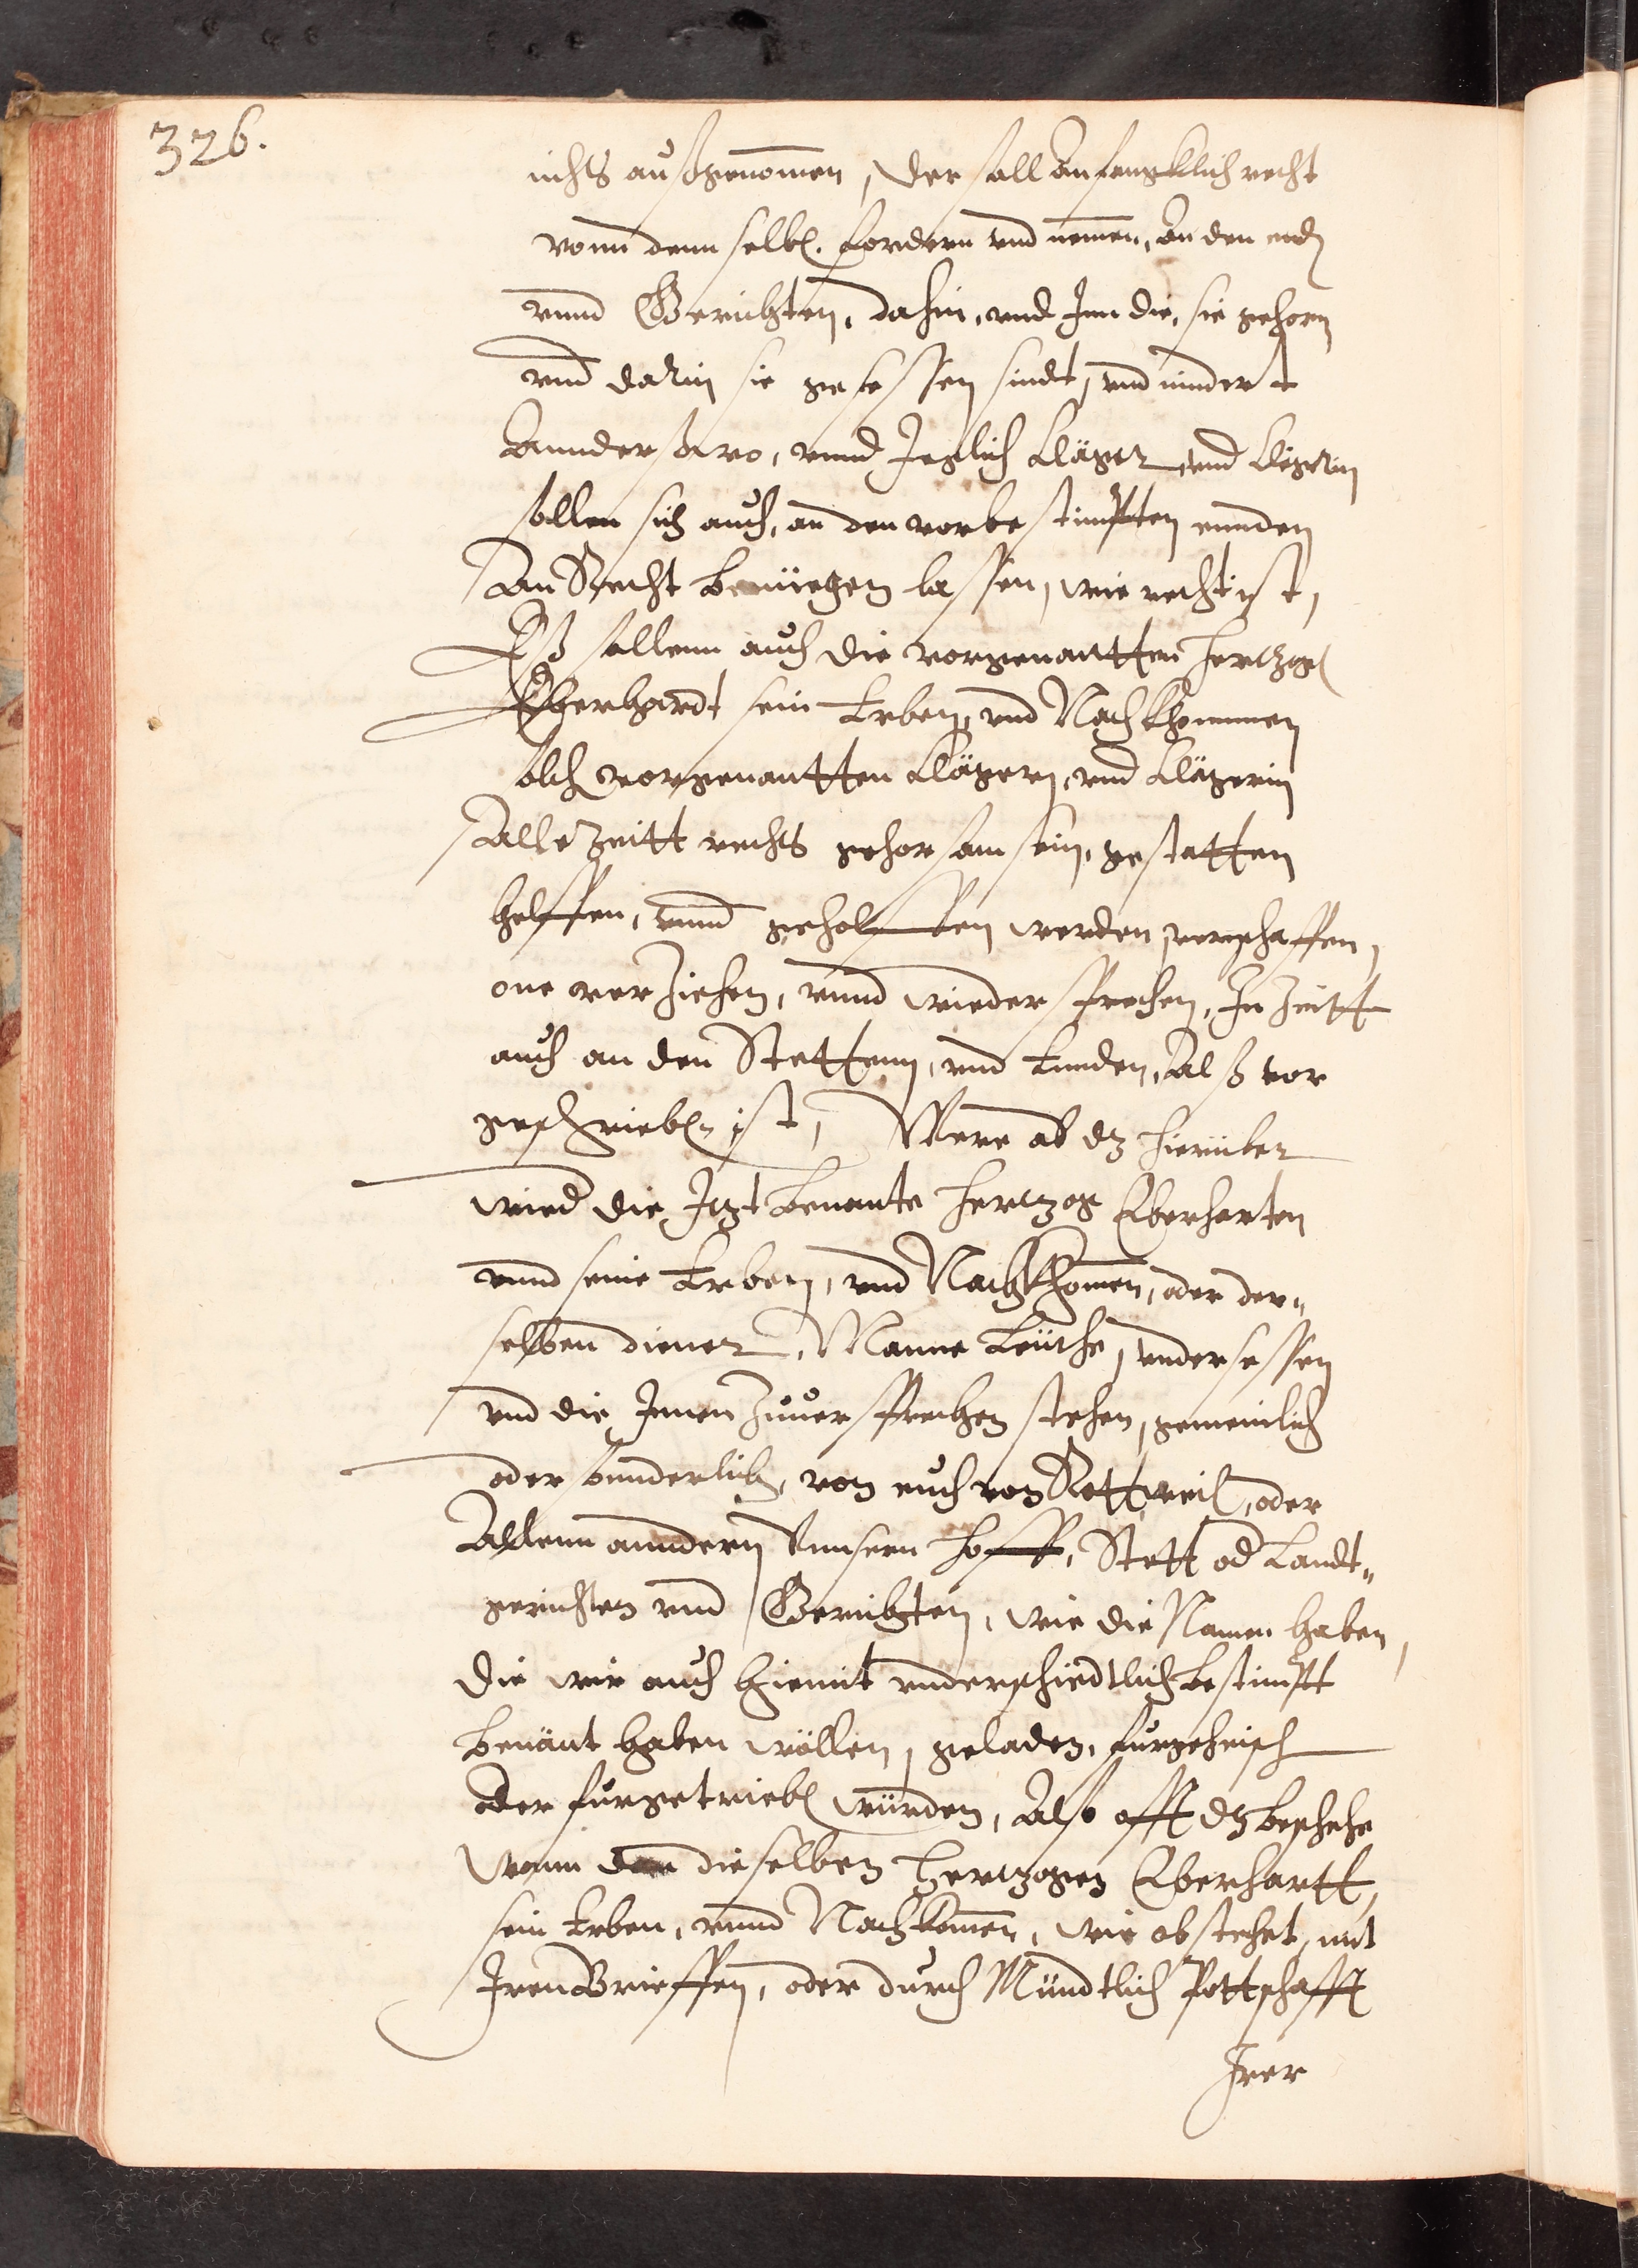 326.
nichts außgenommen, der soll Anfengklich recht
vonn denn selb(en). fordern vnd nemen, An den end(en)
vnnd Gerichten, dahin, vnd Inn die, sie gehorn
vnd darin sie gesessen sindt, vnd nindert
Annderßwo, vnnd Jeglich Kläger vnd Klegerin
sollen sich auch, an den vorbestimpten ennden
An Recht benüegen lassen, wie recht ist,
Eß sollenn auch die vorgenantten Hertzog
Eberhardt sein Erben, vnd Nachkhommen
solch vorgenantten Klägern, vnd Klägerin
Alle Zeitt rechts gehorsam sein, gestatten
helffen, vnnd geholffen werden, verschaffen,
one verziehen, vnnd wiedersprechen, In Zeitt
auch an den Stettenn, vnd Ennden, Alß vor
geschrieb(en) ist, Were ab dz hierüber
wied die Jtzt benante Hertzog Eberharten
vnnd seine Erben, vnd Nachkhomen, oder der„
selben diener, Manne Leüthe, vndersessen
vnd die Jnnen Zuuersprechen stehen, gemeinlich
oder sunderlich, von euch von Rottweil, oder
Allenn anndern Vnnsern Hoff, Stett od Landt„
gerichten vnd Gerichten, wie die Namen haben,
die wir auch hiemit vnderschiedtlich bestimpt
benänt haben wöllen, geladen, fürgeheisch
oder fürgetrieb(en) würden, Also offt dz beschehe
wann dan dieselben Hertzogen Eberhartt,
sein Erben, vnnd Nachkomen, wie obstehet, mit
Jren Brieffen, oder durch Mündtlich Pottschafft
Jrer